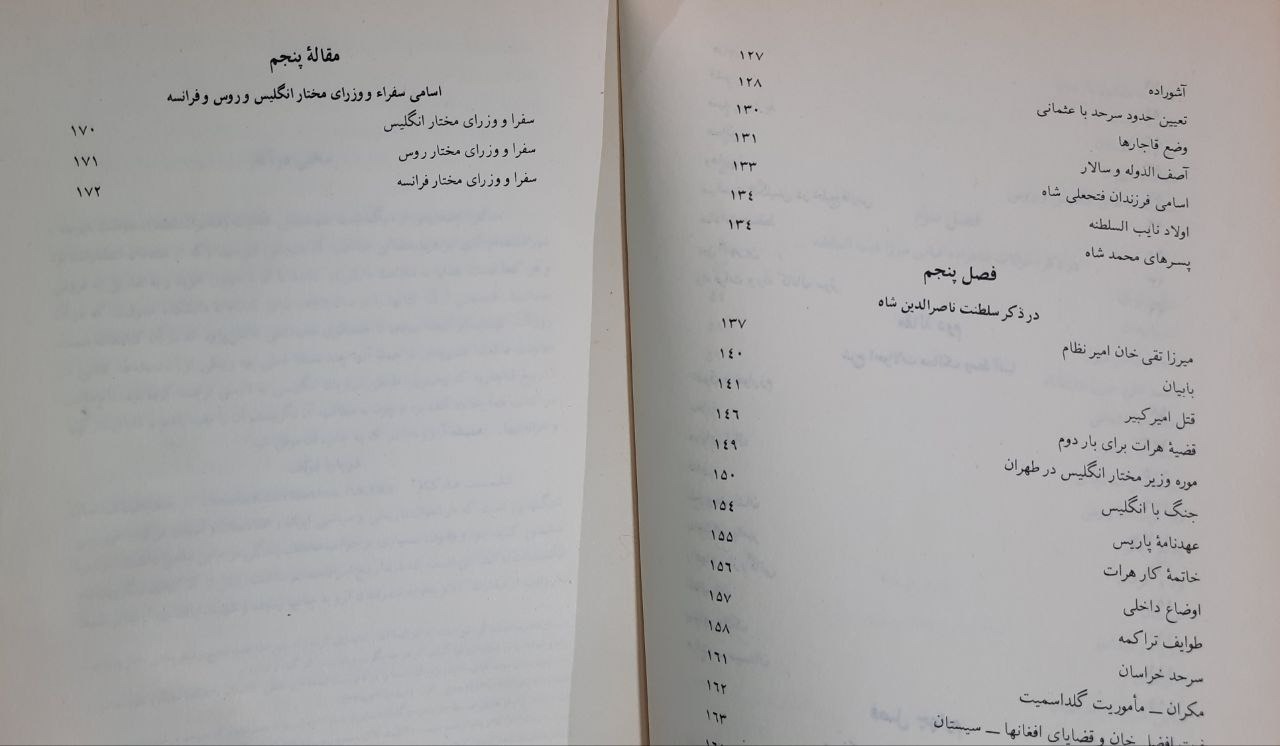 آشوراده ١٢٧
تعیین حدود سرحد با عثمانی ١٢٨
وضع قاجارها ١٣٠
آصف الدوله و سالار ١٣١
اسامی فرزندان فتحعلی شاه ١٣٣
اولاد نایب السلطنه ١٣٤
پسرهای محمد شاه ١٣٤
فصل پنجم
در ذکر سلطنت ناصرالدین شاه
میرزا تقی خان امیر نظام ١٣٧
بابیان ١٤٠
قتل امیرکبیر ١٤١
قضیهٔ هرات برای بار دوم ١٤٦
موره وزیر مختار انگلیس در طهران ١٤٩
جنگ با انگلیس ١٥٠
عهدنامهٔ پاریس ١٥٤
خاتمهٔ کار هرات ١٥٥
اوضاع داخلی ١٥٦
طوایف تراکمه ١٥٧
سرحد خراسان ١٥٨
مکران ــ مأموریت گلداسمیت ١٦١
افضل خان و قضایای افغانها ــ سیستان ١٦٢
١٦٣
مقالهٔ پنجم
اسامی سفراء و وزرای مختار انگلیس و روس و فرانسه
سفرا و وزرای مختار انگلیس ١٧٠
سفرا و وزرای مختار روس ١٧١
سفرا و وزرای مختار فرانسه ١٧٢